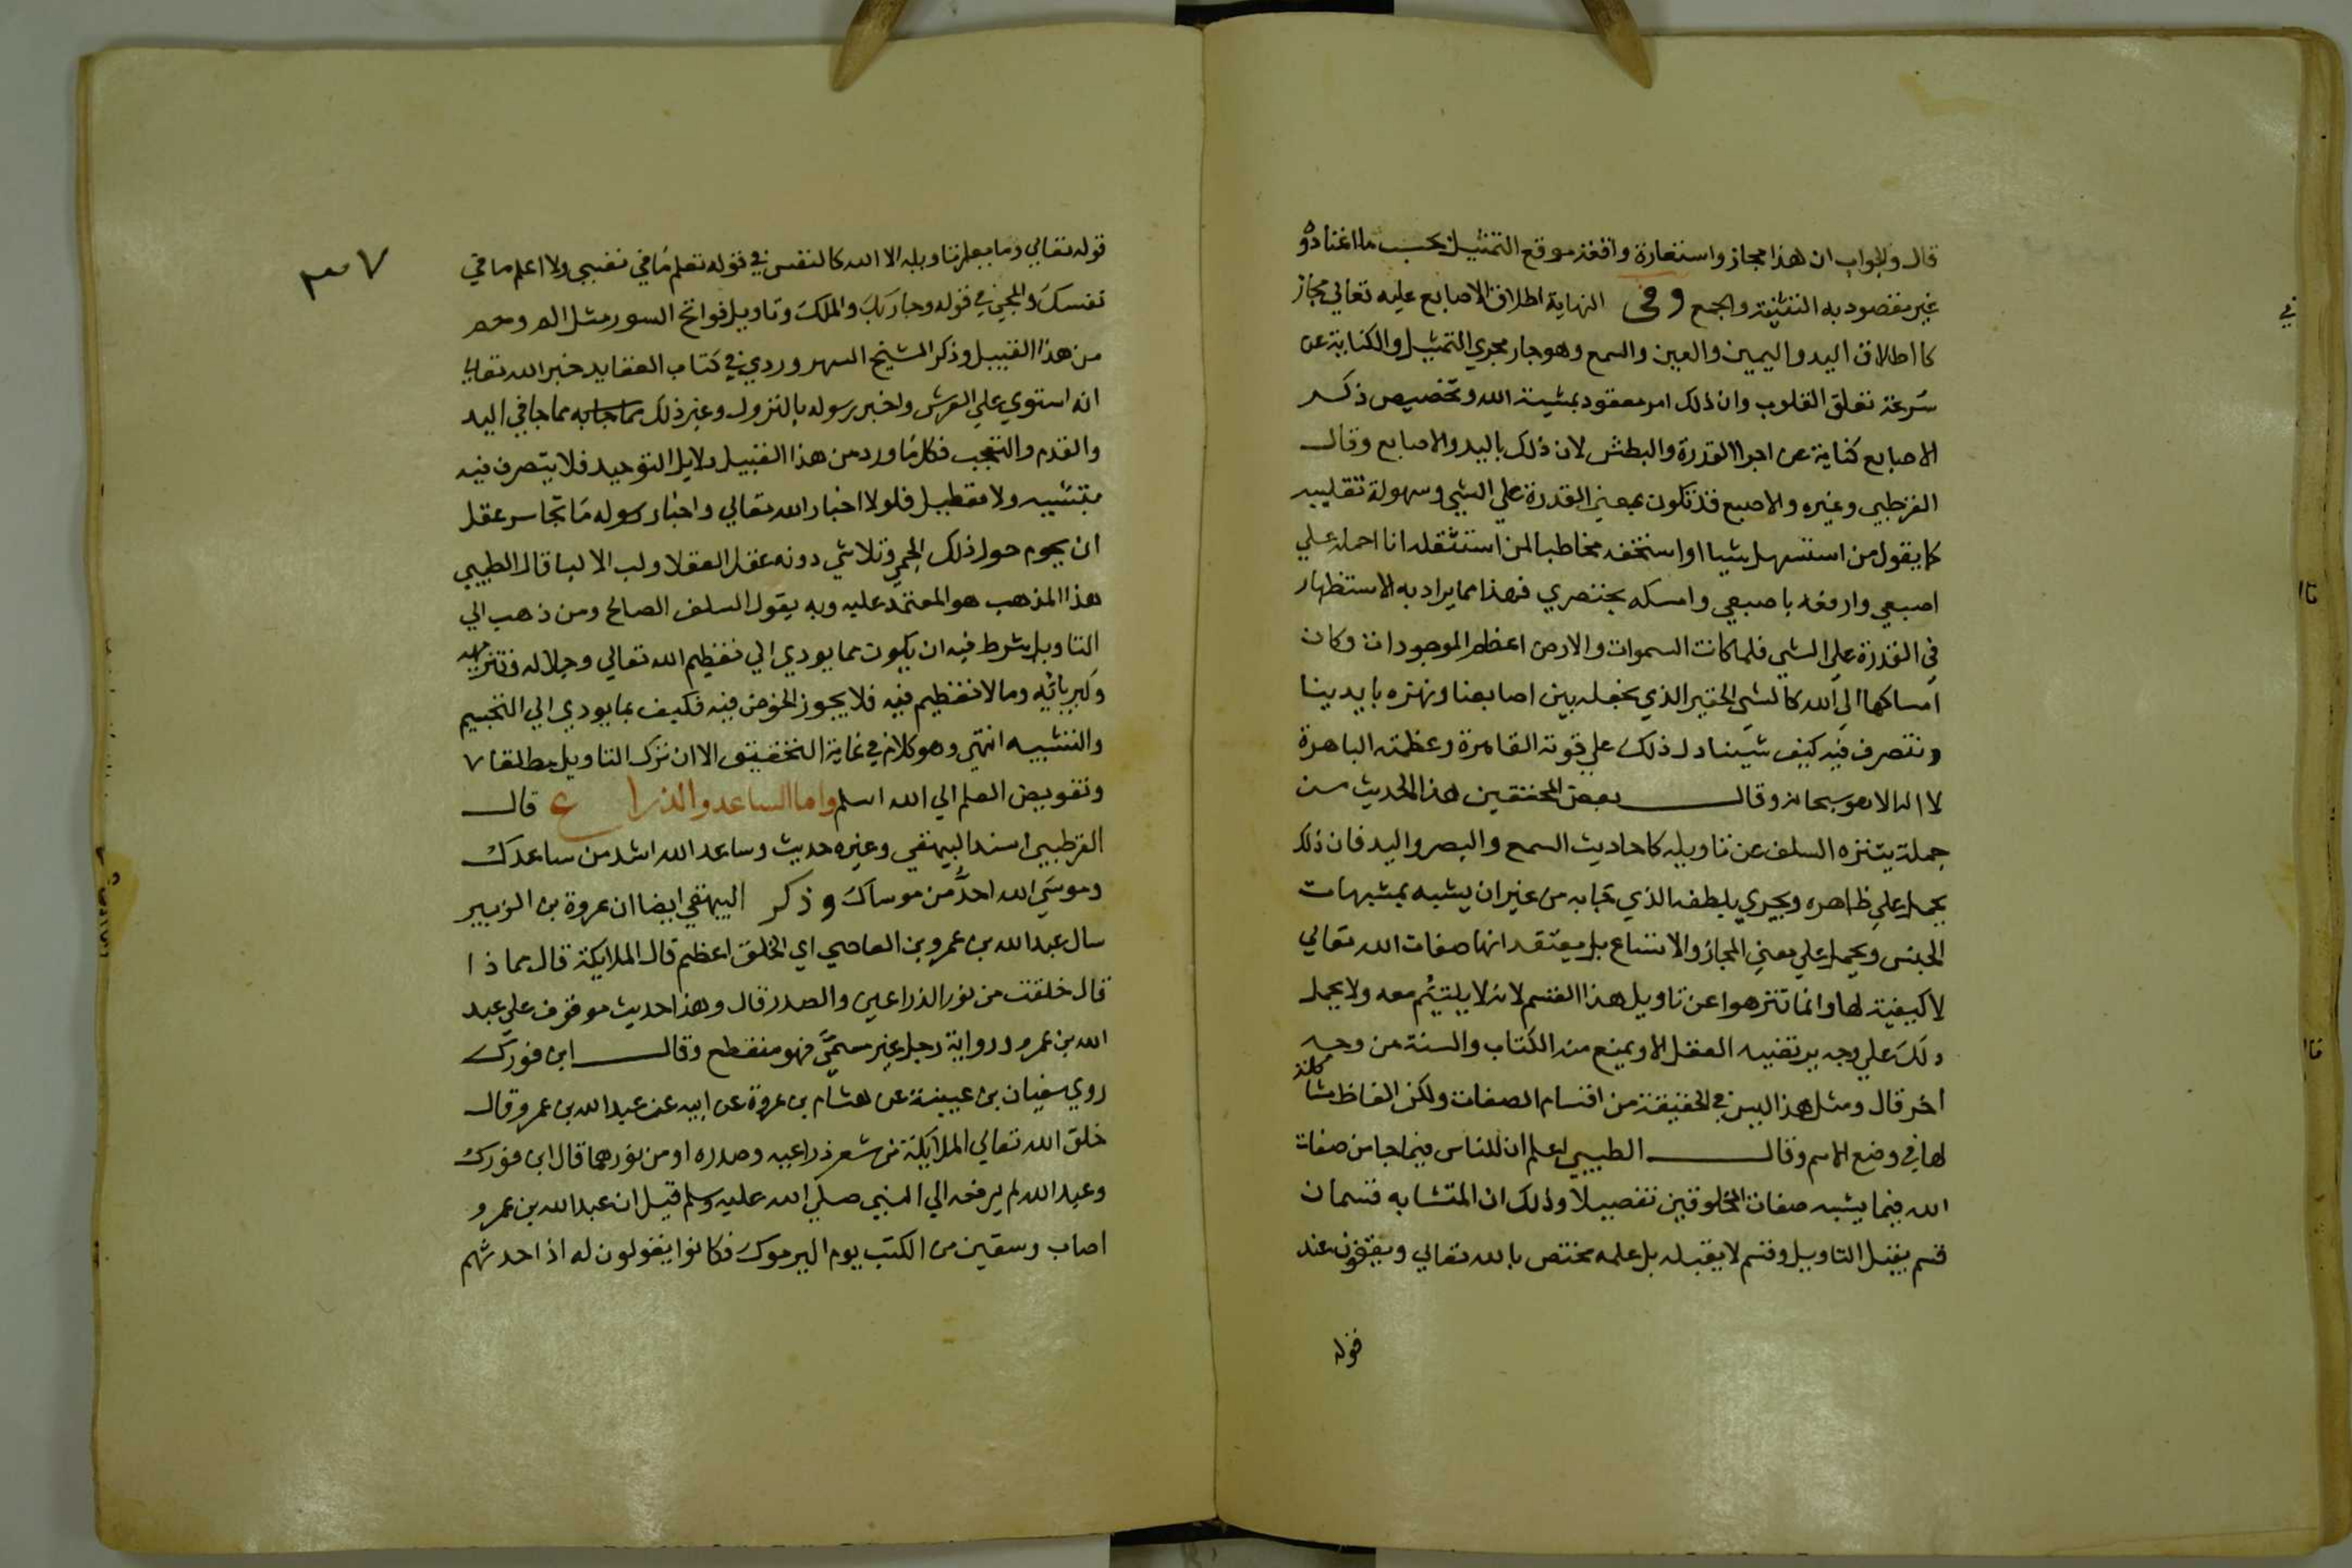 قال والجواب ان هذا مجاز واستعارة واقعة موقع التمثيل بحسب ما اعتادوه
غير مقصود به التثنية والجمع وفي النهاية اطلاق الاصابع عليه تعالي مجاز
كاطلاق اليد واليمين والعين والسمع وهو جار مجري التمثيل والكناية عن
سرعة تقلق القلوب وان ذلك امر معقود بمشيئة الله وتخصيص ذكر
الاصابع كناية عن اجرا القدرة والبطش لان ذلك باليد والاصابع وقال
القرطبي وغيره والاصبع قد تكون بمعني القدرة علي الشي وسهولة تقليبه
كما يقول من استسهل شيا او استخفه مخاطبا لمن استثقله انا احمله علي
اصبعي وارفعه باصبعي وامسكه بخنصري فهذا مما يراد به الاستظهار
في القدرة علي الشي فلما كانت السموات والارض اعظم الموجودات وكان
امساكها الي الله كالشي الحقير الذي نجعله بين اصابعنا ونهزه بايدينا
ونتصرف فيه كيف شينا دل ذلك علي قوته القاهرة وعظمته الباهرة
لا اله الا هو سبحانه وقال بعض المحققين هذا الحديث من
جملة يتنزه السلف عن تاويله كاحاديث السمع والبصر واليد فان ذلك
يحمل علي ظاهره ويجري بلطفه الذي جا به من غير ان يشبه بمشبهات
الجنس ويحمل علي معني المجاز والاتساع بل يعتقد انها صفات الله تعالي
لا كيفية لها وانما تنزهوا عن تاويل هذا القسم لانه لا يلتئم معه ولا يحمل
ذلك علي وجه يرتضيه العقل الا ويمنع منه الكتاب والسنة من وجه
اخر قال ومثل هذا ليس في الحقيقة من اقسام الصفات ولكن الفاظ مشاكلة
لها في وضع الاسم وقال الطيبي اعلم ان للناس فيما جا من صفات
الله فيما يشبه صفات المخلوقين تفصيلا وذلك ان المتشابه قسمان
قسم يقبل التاويل وقسم لا يقبله بل علمه مختص بالله تعالي ويقفون عند
قوله
٣٧
قوله تعالي وما يعلم تاويله الا الله كالنفس في قوله تعلم ما في نفسي ولا اعلم ما في
نفسك والمجي في قوله وجا ربك والملك وتاويل فواتح السور مثل الم وحم
من هذا القبيل وذكر الشيخ السهروردي في كتاب العقايد خبر الله تعالي
انه استوي علي العرش واخبر رسوله بالنزول وغير ذلك مما جا به مما جا في اليد
والقدم والتعجب فكل ما ورد من هذا القبيل دلايل التوحيد فلا يتصرف فيه
بتشبيه ولا تعطيل فلولا اخبار الله تعالي واخبار رسوله ما تجاسر عقل
ان يحوم حول ذلك الحمي وتلاشي دونه عقل العقلا ولب الالبا قال الطيبي
هذا المذهب هو المعتمد عليه وبه يقول السلف الصالح ومن ذهب الي
التاويل شرط فيه ان يكون مما يودي الي تعظيم الله تعالي وجلاله وتنزيهه
وكبريائه وما لا تعظيم فيه فلا يجوز الخوض فيه فكيف بما يودي الي التجسيم
والتشبيه انتهي وهو كلام في غاية التحقيق الا ان ترك التاويل مطلقا
وتفويض العلم الي الله اسلم واما الساعد والذراع قال
القرطبي اسند البيهقي وغيره حديث وساعد الله اشد من ساعدك
وموسي الله احد من موساك وذكر البيهقي ايضا ان عروة بن الزبير
سال عبد الله بن عمرو بن العاصي اي الخلق اعظم قال الملايكة قال مماذا
قال خلقت من نور الذراعين والصدر قال وهذا حديث موقوف علي عبد
الله بن عمرو رواية رجل غير مسمي فهو منقطع وقال ابن فورك
روي سفيان بن عيينة عن هشام بن عروة عن ابيه عن عبد الله بن عمرو قال
خلق الله تعالي الملايكة من شعر ذراعيه وصدره او من نورهما قال ابن فورك
وعبد الله لم يرفعه الي النبي صلي الله عليه وسلم قيل ان عبد الله بن عمرو
اصاب وسقين من الكتب يوم اليرموك فكانوا يقولون له اذا حدثهم